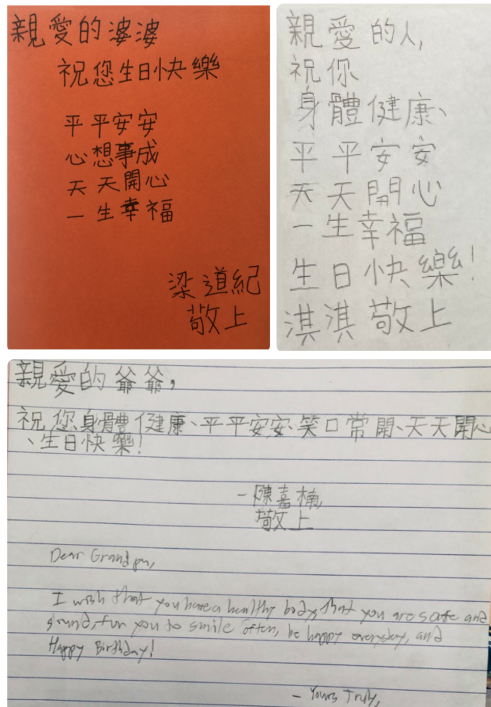 親愛的婆婆
祝您生日快樂
平平安安
心想事成
天天開心
一生幸福
梁道紀
敬上
親愛的人,
祝你
身體健康、
平平安安
天天開心
一生幸福
生日快樂!
淇淇敬上
親愛的爺爺,
祝您身體健康、平平安安、笑口常開、天天開心
、生日快樂!
－陳嘉楠
敬上
Dear Grandpa,
I wish that you have a healthy body, that you are safe and
sound, for you to smile often, be happy everyday, and
Happy Birthday!
- Yours Truly,